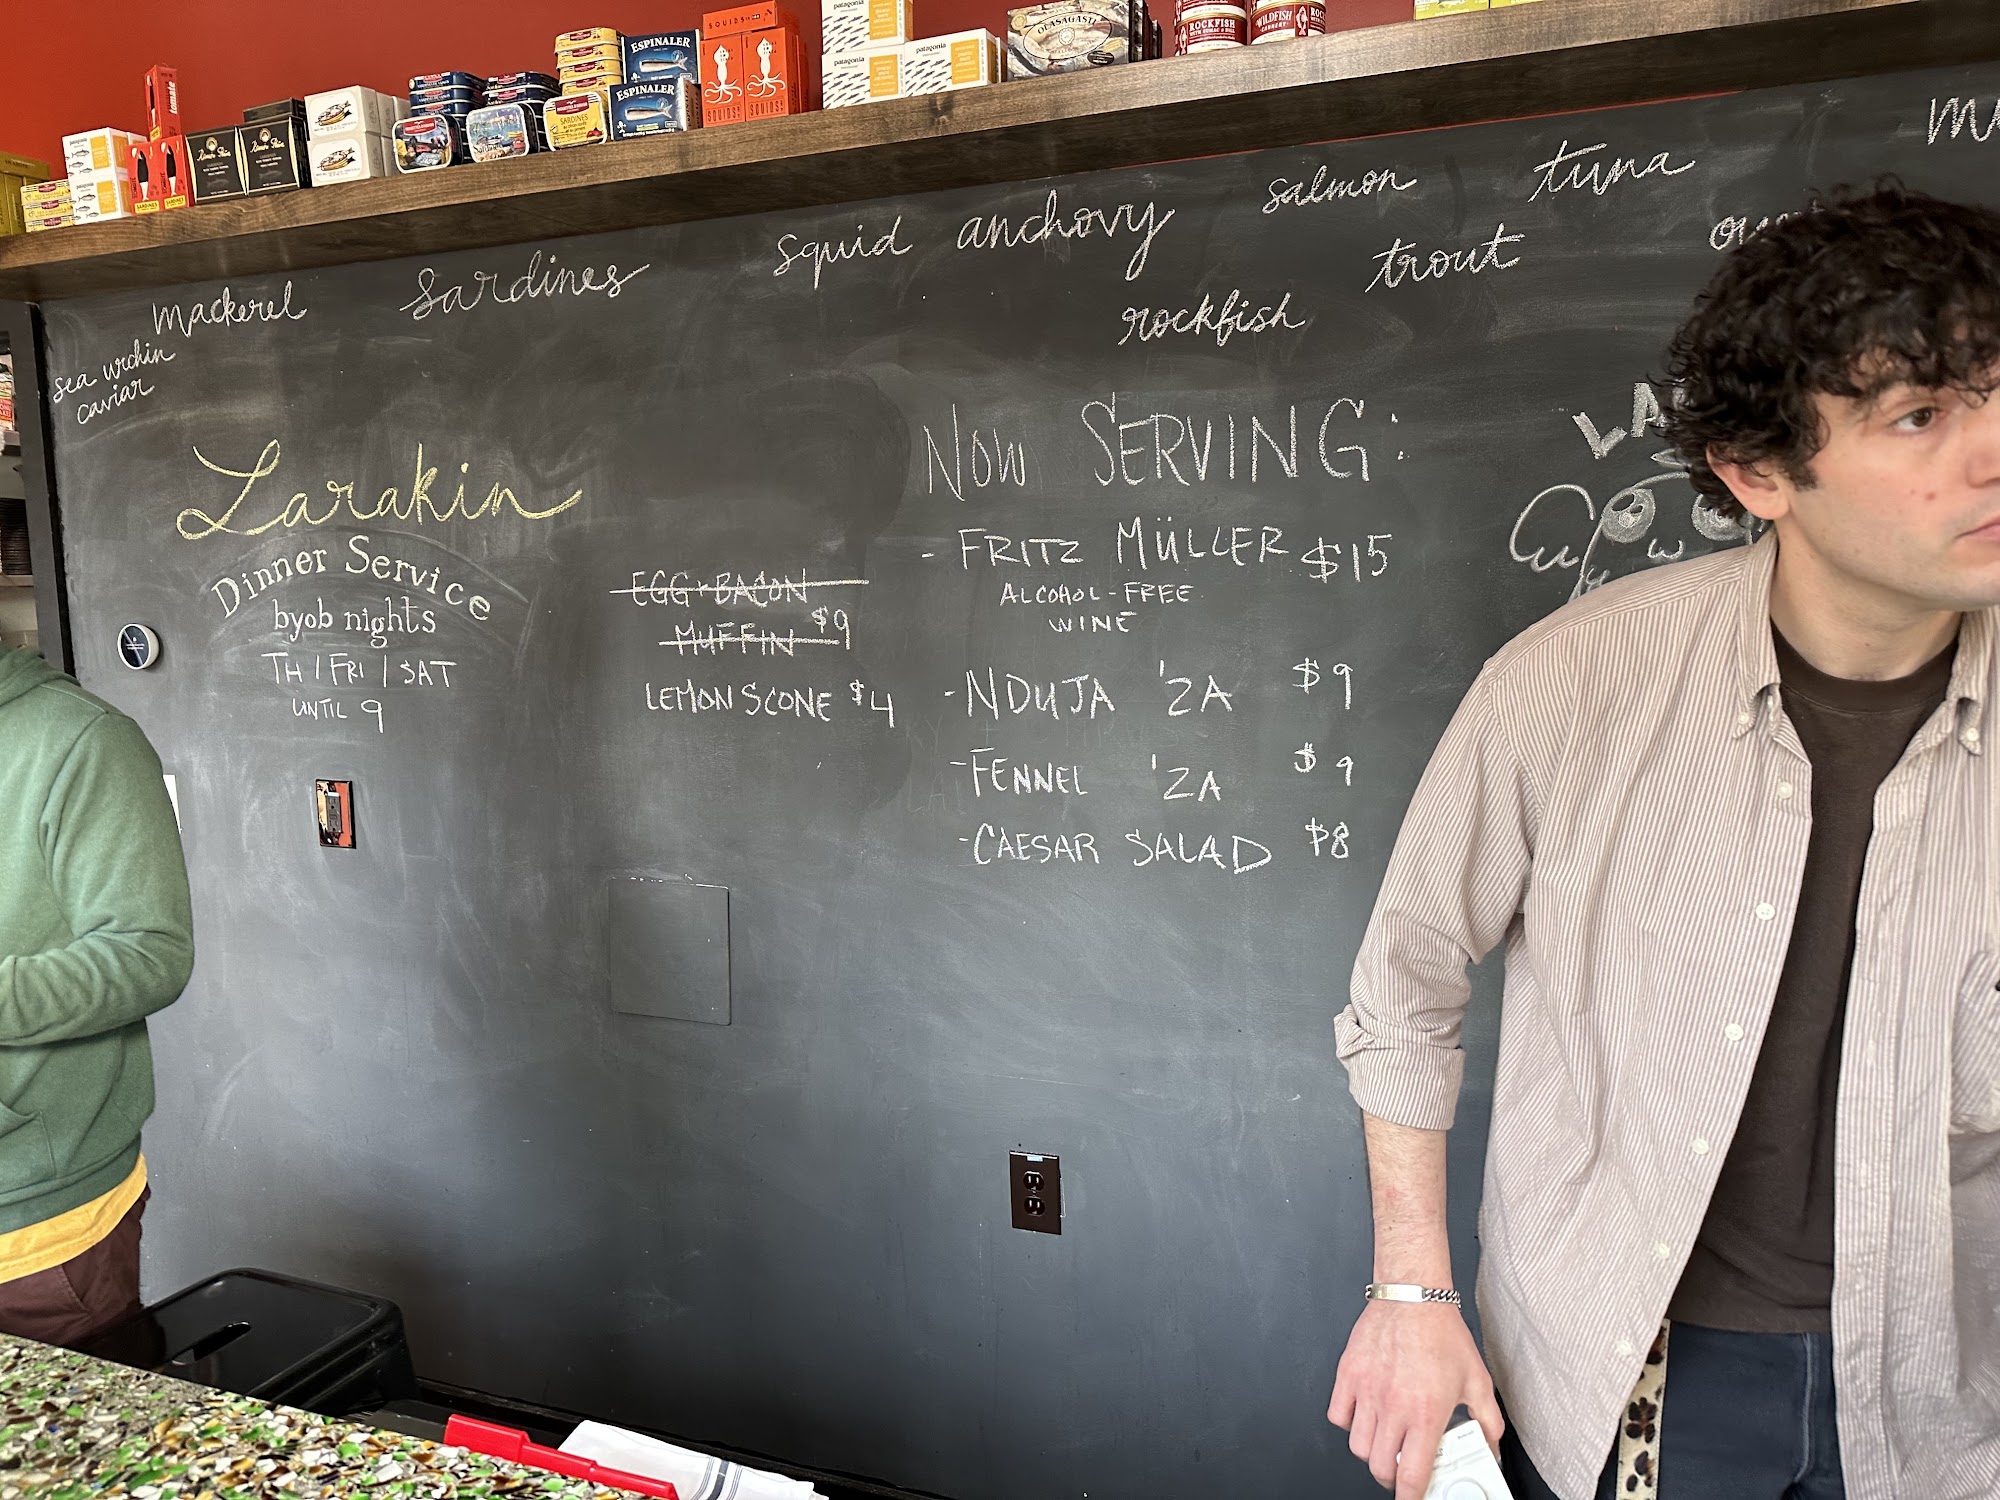 tomate
SARDINES
ESPINALER
ESPINALER
SARDINES
SQUIDS
SQUIDS
SQUIDS
patagonia
patagonia
patagonia
patagonia
OLASAGASTI
ROCKFISH
WILDFISH
CANNERY
mackerel
sardines
squid
anchovy
salmon
tuna
trout
rockfish
sea urchin
caviar
Larakin
Dinner Service
byob nights
TH / FRI / SAT
UNTIL 9
EGG + BACON
MUFFIN $9
LEMON SCONE $4
NOW SERVING:
- FRITZ MÜLLER $15
ALCOHOL-FREE
WINE
- NDUJA 'ZA $9
- FENNEL 'ZA $9
- CAESAR SALAD $8